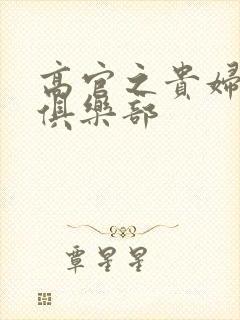 高官之貴婦
俱樂部
覃星星